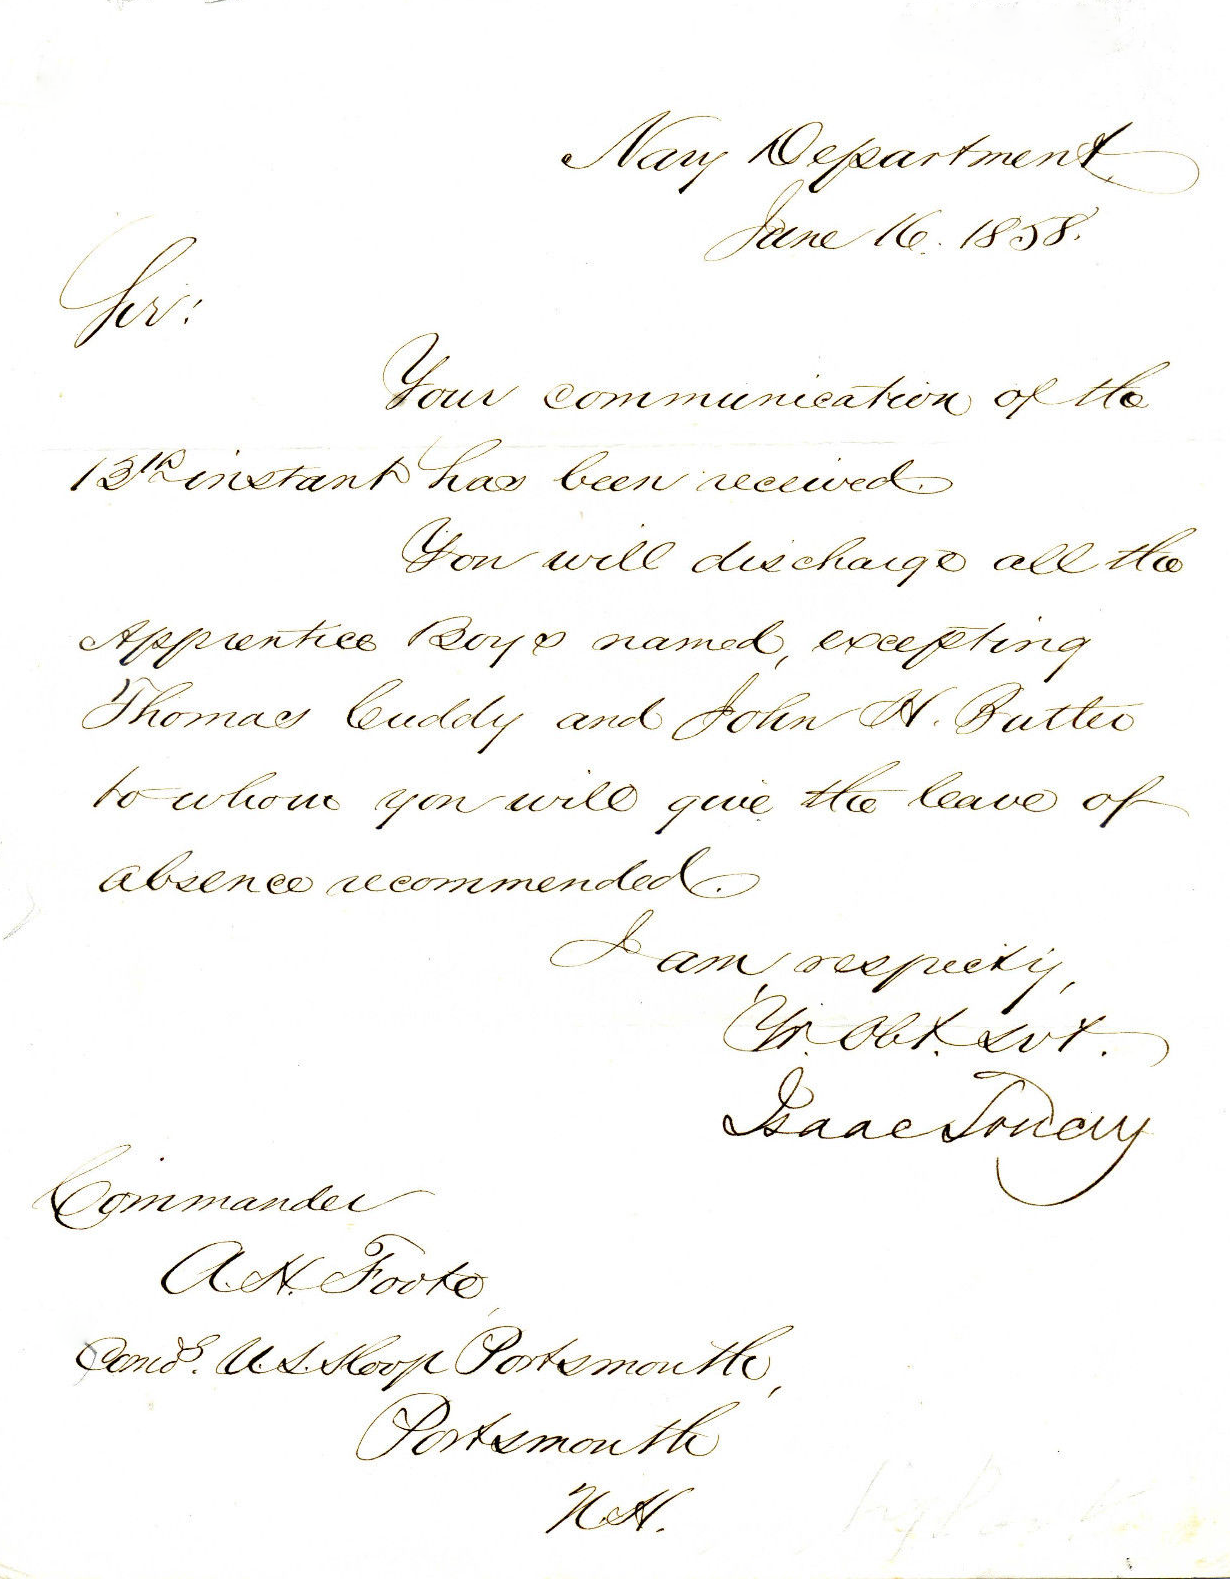 Navy Department,
June 16. 1858.
Sir:
Your communication of the
13th instant has been received.
You will discharge all the
Apprentice Boys named, excepting
Thomas Cuddy and John H. Butler
to whom you will give the leave of
absence recommended.
I am, respecty,
Yr. Obt. Svt.
Isaac Toucey
Commander
A. H. Foote,
Comdg. U.S. Sloop Portsmouth,
Portsmouth
N.H.